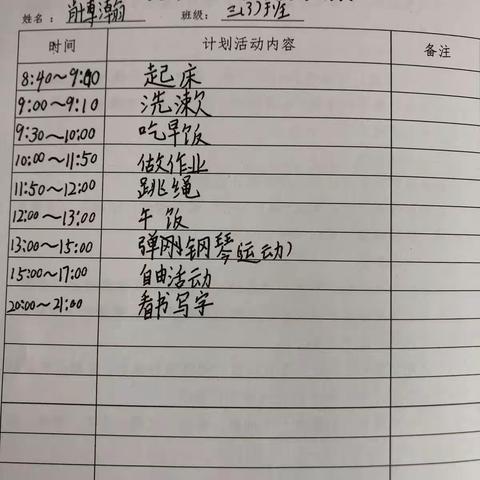 姓名：肖博瀚 班级：三(3)班
时间 计划活动内容 备注
8:40～9:00 起床
9:00～9:10 洗漱
9:30～10:00 吃早饭
10:00～11:50 做作业
11:50～12:00 跳绳
12:00～13:00 午饭
13:00～15:00 弹刚钢琴(运动)
15:00～17:00 自由活动
20:00～21:00 看书写字